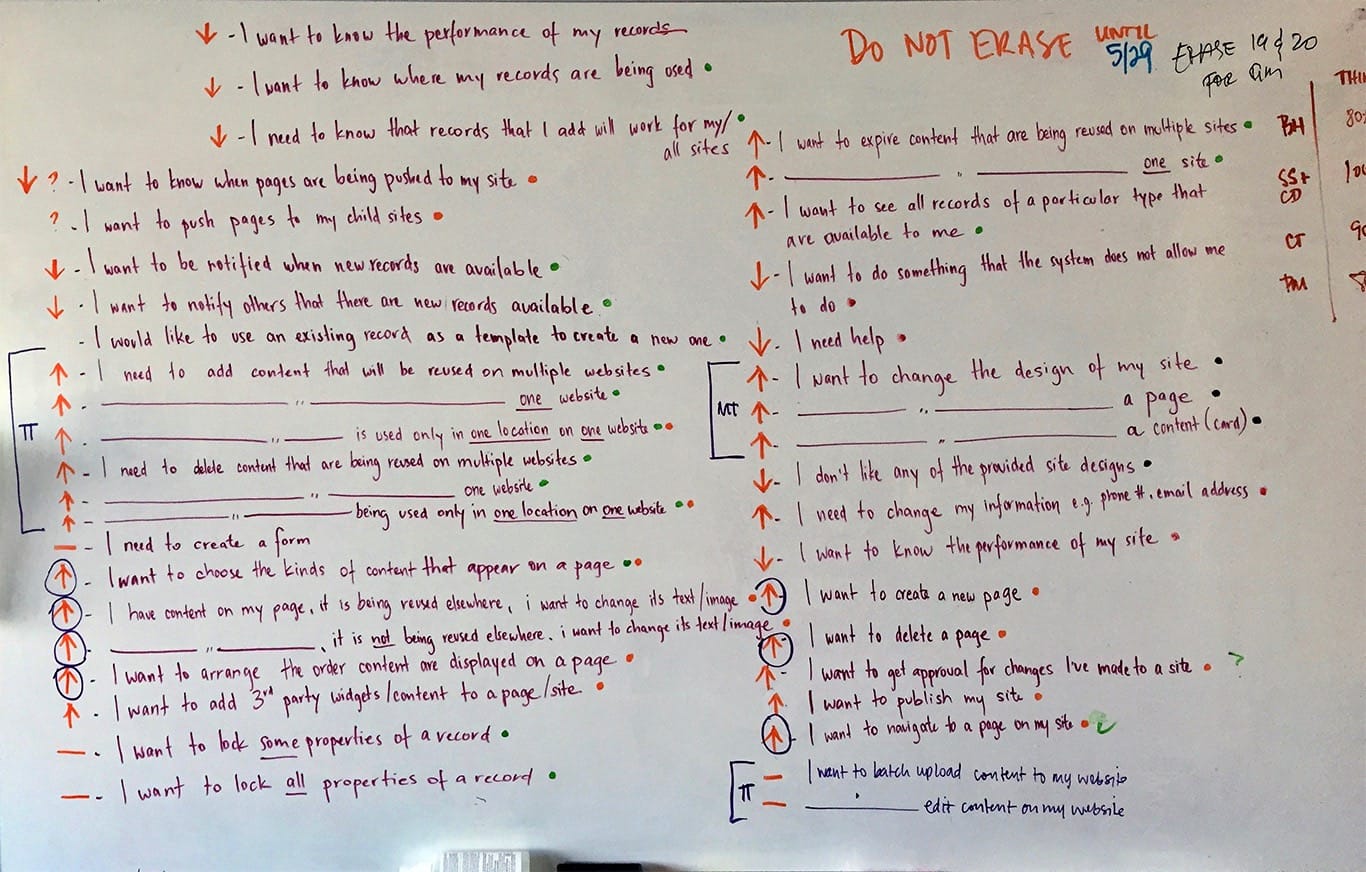 ↓ - I want to know the performance of my records
↓ - I want to know where my records are being used
↓ - I need to know that records that I add will work for my/
all sites
↓ ? - I want to know when pages are being pushed to my site
? - I want to push pages to my child sites
↓ - I want to be notified when new records are available
↓ - I want to notify others that there are new records available
- I would like to use an existing record as a template to create a new one
↑ - I need to add content that will be reused on multiple websites
↑ - ______ " ______ one website
↑ ______ " ______ is used only in one location on one website
π
↑ - I need to delete content that are being reused on multiple websites
↑ - ______ " ______ one website
↑ - ______ " ______ being used only in one location on one website
— - I need to create a form
↑ - I want to choose the kinds of content that appear on a page
↑ - I have content on my page, it is being reused elsewhere, i want to change its text/image
↑ ______ " ______, it is not being reused elsewhere. i want to change its text/image
↑ - I want to arrange the order content are displayed on a page
↑ - I want to add 3rd party widgets/content to a page/site
— - I want to lock some properties of a record
— - I want to lock all properties of a record
DO NOT ERASE UNTIL
5/29
ERASE 19 & 20
FOR
↑ - I want to expire content that are being reused on multiple sites
↑ - ______ " ______ one site
↑ - I want to see all records of a particular type that
are available to me
↓ - I want to do something that the system does not allow me
to do
↓ - I need help
↑ - I want to change the design of my site
MT
↑ - ______ " ______ a page
↑ - ______ " ______ a content (card)
↓ - I don't like any of the provided site designs
↑ - I need to change my information e.g. phone #, email address
↓ - I want to know the performance of my site
↑ - I want to create a new page
↑ I want to delete a page
↑ - I want to get approval for changes I've made to a site ?
↑ I want to publish my site
↑ - I want to navigate to a page on my site
π
— I want to batch upload content to my website
— ______ edit content on my website
BH
SS+
CD
CT